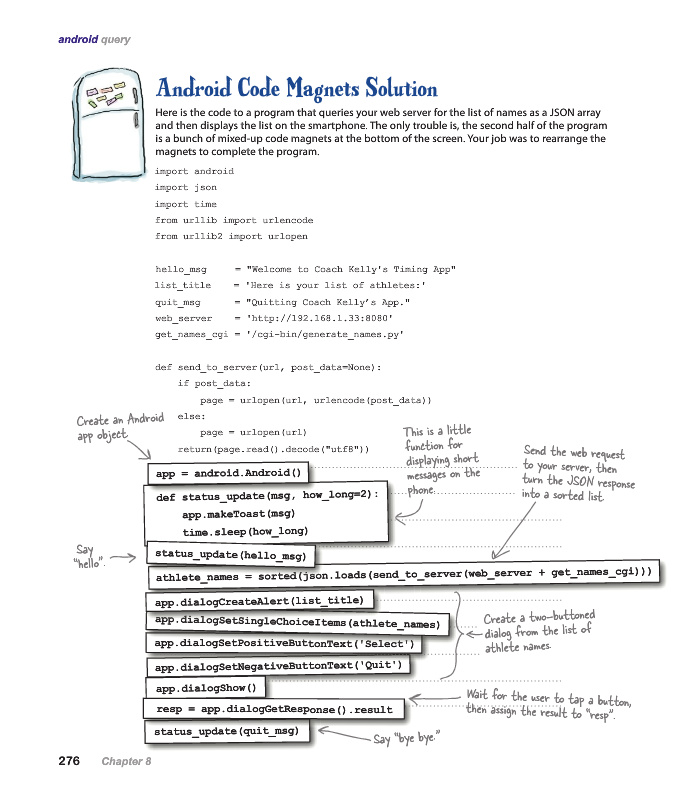 android query
Android Code Magnets Solution
Here is the code to a program that queries your web server for the list of names as a JSON array
and then displays the list on the smartphone. The only trouble is, the second half of the program
is a bunch of mixed-up code magnets at the bottom of the screen. Your job was to rearrange the
magnets to complete the program.
import android
import json
import time
from urllib import urlencode
from urllib2 import urlopen
hello_msg = "Welcome to Coach Kelly's Timing App"
list_title = 'Here is your list of athletes:'
quit_msg = "Quitting Coach Kelly's App."
web_server = 'http://192.168.1.33:8080'
get_names_cgi = '/cgi-bin/generate_names.py'
def send_to_server(url, post_data=None):
if post_data:
page = urlopen(url, urlencode(post_data))
else:
page = urlopen(url)
return(page.read().decode("utf8"))
Create an Android
app object.
This is a little
function for
displaying short
messages on the
phone.
Send the web request
to your server, then
turn the JSON response
into a sorted list.
app = android.Android()
def status_update(msg, how_long=2):
app.makeToast(msg)
time.sleep(how_long)
Say
"hello".
status_update(hello_msg)
athlete_names = sorted(json.loads(send_to_server(web_server + get_names_cgi)))
app.dialogCreateAlert(list_title)
app.dialogSetSingleChoiceItems(athlete_names)
app.dialogSetPositiveButtonText('Select')
app.dialogSetNegativeButtonText('Quit')
app.dialogShow()
Create a two-buttoned
dialog from the list of
athlete names.
resp = app.dialogGetResponse().result
Wait for the user to tap a button,
then assign the result to "resp".
status_update(quit_msg)
Say "bye bye."
276 Chapter 8